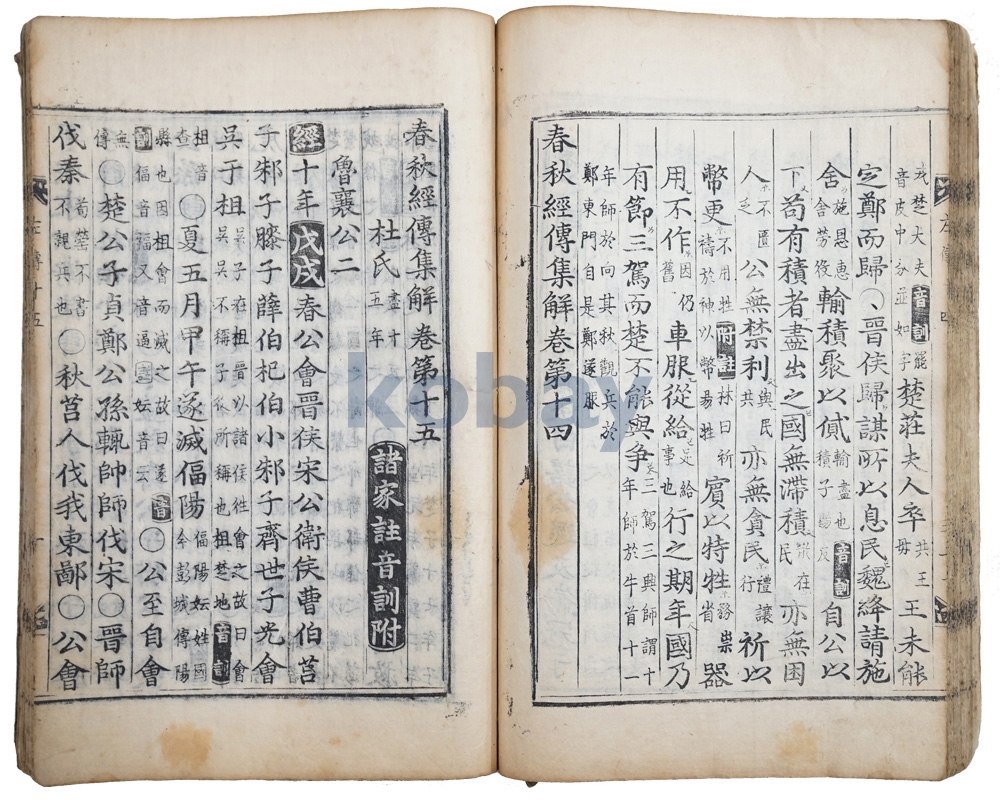 戎楚大夫夫音訓罷音皮中分並如字楚莊夫人卒共王母王未能
定鄭而歸〇晉侯歸謀所以息民魏絳請施
舍施恩惠舍勞役輸積聚以貸輸盡也音訓積子賜反自公以
下苟有積者盡出之國無滯積散在民亦無困
人不匱乏公無禁利與民共亦無貪民禮讓行祈以
幣更不用牲禱於神以幣易牲附註林曰祈賓以特牲務崇省器
用不作因仍舊車服從給足給事也行之期年國乃
有節三駕而楚不能與爭三駕三興師謂十年師於牛首十一
年師於向其秋觀兵於鄭東門自是鄭遂服
春秋經傳集解卷第十四
春秋經傳集解卷第十五
杜氏盡十五年 諸家註音訓附
魯襄公二
經十年戊戌春公會晉侯宋公衛侯曹伯莒
子邾子滕子薛伯杞伯小邾子齊世子光會
吳于柤吳子在柤晉以諸侯往會之故曰會吳吳不稱子從所稱也柤楚地音訓
柤音查〇夏五月甲午遂滅偪陽偪陽妘姓國今彭城傅陽
縣也因柤會而滅之故曰遂音訓偪音福又音逼妘音云〇公至自會
無傳〇楚公子貞鄭公孫輒帥師伐宋〇晉師
伐秦荀罃不書不親兵也〇秋莒人伐我東鄙〇公會
左傳十五
kobay